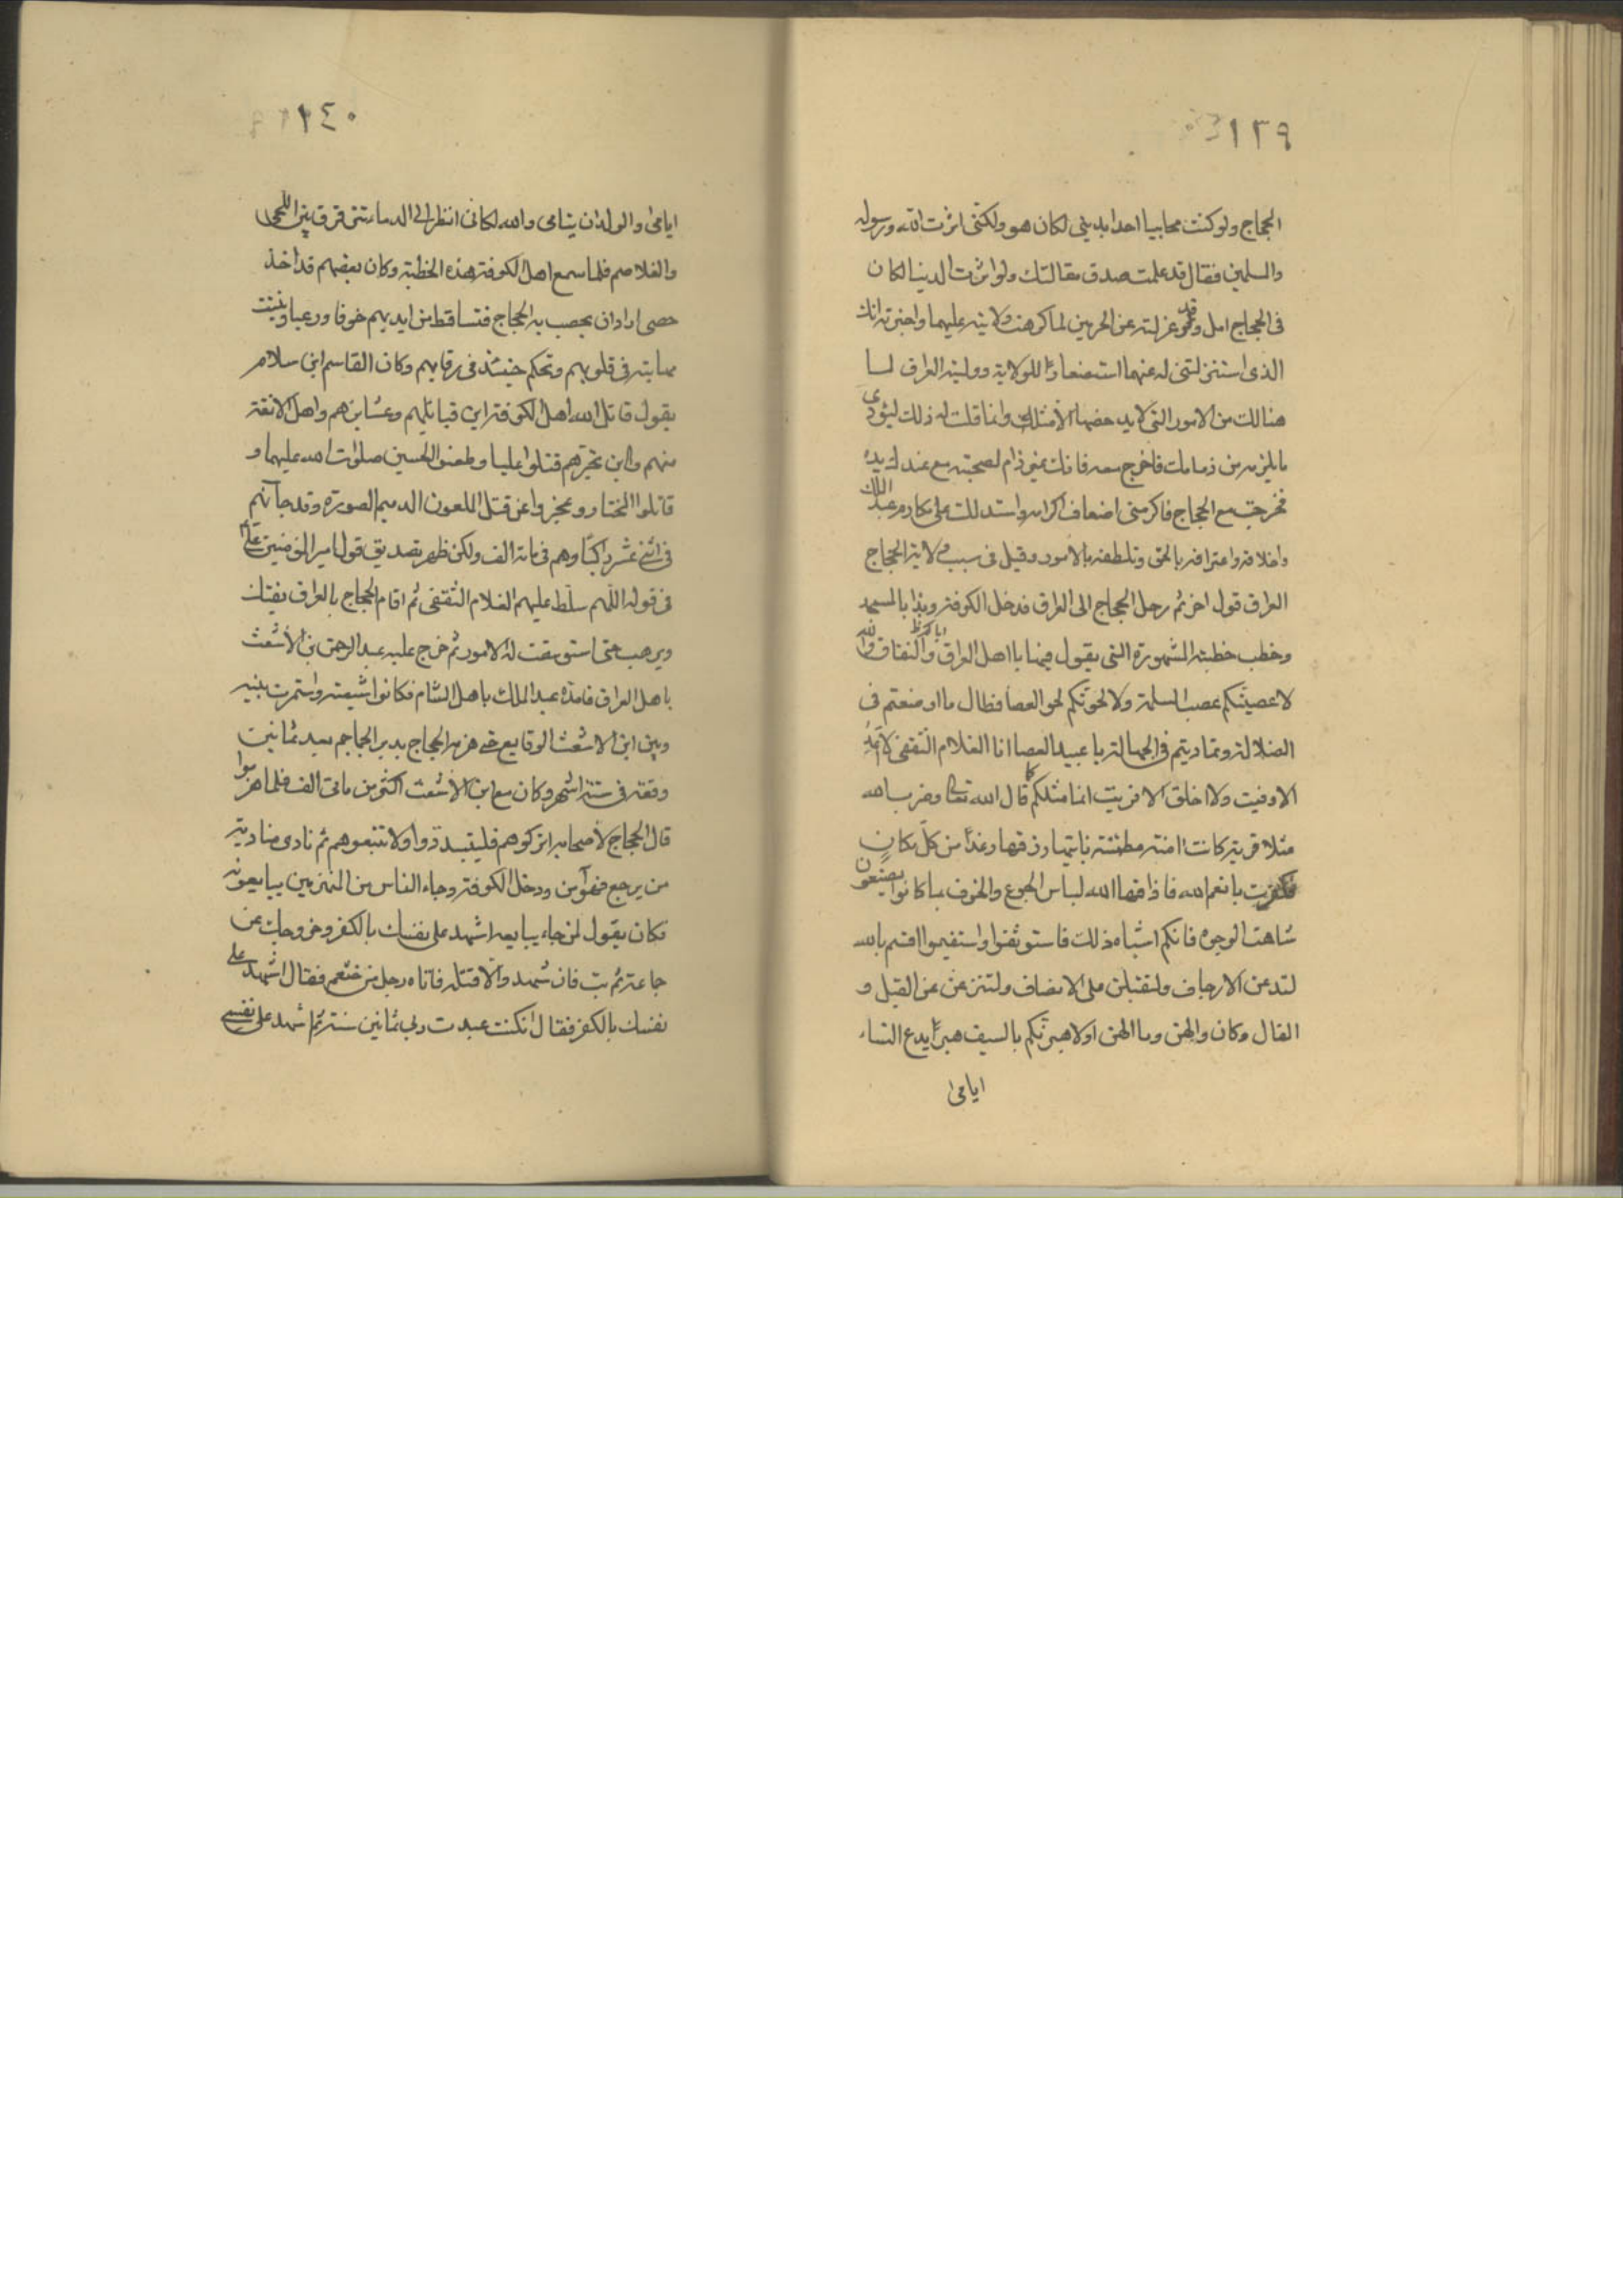 ١٣٩
الحجاج ولو كنت محابيا احدا بديني لكان هو ولكنى اثرت الله ورسوله
والمسلمين فقال قد علمت صدق مقالتك ولو اثرت الدنيا لكان
فى الحجاج امل وقد عزلته عن الحرمين لما كرهت ولايته عليهما واخبرته انك
الذى استنزلتنى له عنهما استصغارا للولاية ووليته العراق لما
هنالك من الامور التى لا يدحضها الا مثله وانما قلت له ذلك ليؤدى
ما يلزمه من ذمامك فاخرج معه فانك غير ذام لصحبته مع عندك يده
فخرجت مع الحجاج فاكرمنى اضعاف اكرامه واستدللت على مكارم عبد الملك
واخلاقه واعترافه بالحق وتلطفه بالامور وقيل فى سبب ولاية الحجاج
العراق قول اخر ثم رحل الحجاج الى العراق فدخل الكوفة وبدا بالمسجد
وخطب خطبته المشهورة التى يقول فيها يا اهل العراق والنفاق والله
لاعصبنكم عصب السلمة ولالحونكم لحو العصا فطال ما اوضعتم فى
الضلالة وتماديتم فى الجهالة يا عبيد العصا انا الغلام الثقفى لا اعد
الا وفيت ولا اخلق الا فريت انما مثلكم كما قال الله تعالى وضرب الله
مثلا قرية كانت امنة مطمئنة ياتيها رزقها رغدا من كل مكان
فكفرت بانعم الله فاذاقها الله لباس الجوع والخوف بما كانوا يصنعون
شاهت الوجوه فانكم اشباه ذلك فاستوثقوا واستقيموا اقسم بالله
لتدعن الارجاف ولتقبلن على الانصاف ولتنزعن عن القيل و
القال وكان والهن وما الهن اولاهبرنكم بالسيف هبرا يدع النساء
ايامى
١٤٠
ايامى والولدان يتامى والله لكانى انظر الى الدماء تترقرق بين اللحى
والغلاصم فلما سمع اهل الكوفة هذه الخطبة وكان بعضهم قد اخذ
حصى اراد ان يحصب به الحجاج فتساقط من ايديهم خوفا ورعبا وثبتت
مهابته فى قلوبهم وتحكم حينئذ فى رقابهم وكان القاسم ابن سلام
يقول قاتل الله اهل الكوفة اين قبائلهم وعشايرهم واهل الانفة
منهم واين نخيرهم قتلوا عليا وطعنوا الحسين صلوات الله عليهما و
قاتلوا المختار وعجزوا عن قتل اللعون الدميم الصورة وقد جائهم
فى اثنى عشر راكبا وهم فى ماة الف ولكن ظهر تصديق قول امير المؤمنين
فى قوله اللهم سلط عليهم الغلام الثقفى ثم اقام الحجاج بالعراق يفتك
ويرهب حتى استوسقت له الامور ثم خرج عليه عبد الرحمن بن الاشعث
باهل العراق فامده عبد الملك باهل الشام فكانوا شيعته واستمرت بينه
وبين ابن الاشعث الوقايع حتى هزمه الحجاج بدير الجماجم بعد ثمانين
وقعة فى ستة اشهر وكان مع ابن الاشعث اكثر من مائتى الف فلما هربوا
قال الحجاج لاصحابه اتركوهم فليتبددوا ولا تتبعوهم ثم نادى مناديه
من يرجع فهو آمن ودخل الكوفة وجاء الناس من المنهزمين يبايعونه
فكان يقول لمن جاء يبايعه اشهد على نفسك بالكفر وخروجك عن
جماعة ثم تب فان شهد والا قتله فاتاه رجل من خثعم فقال اشهد على
نفسك بالكفر فقال ان كنت عبدت ربى ثمانين سنة ثم اشهد على نفسى